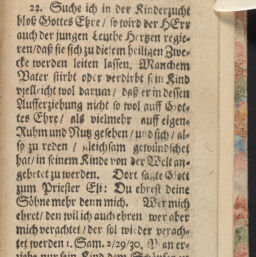 23. Suche ich in der Kinderzucht
bloß Gottes Ehre / so wird der HErr
auch der jungen Leuthe Hertzen regie-
ren / daß sie sich zu diesem heiligen Zwe-
cke werden leiten lassen. Manchem
Vater stirbt oder verdirbt sein Kind
vielleicht wol darum / daß er in dessen
Aufferziehung nicht so wol auff Got-
tes Ehre / als vielmehr auff eigen-
Ruhm und Nutz gesehen / und sich / al-
so zu reden / gleichsam gewünschet
hat / in seinem Kinde von der Welt an-
gebetet zu werden. Dort sagte Gott
zum Priester Eli: Du ehrest deine
Söhne mehr denn mich. Wer mich
ehret / den wil ich auch ehren wer aber
mich verachtet / der sol wieder verach-
tet werden 1. Sam. 2/29/30. Man er-
ziehe nur sein Kind dem